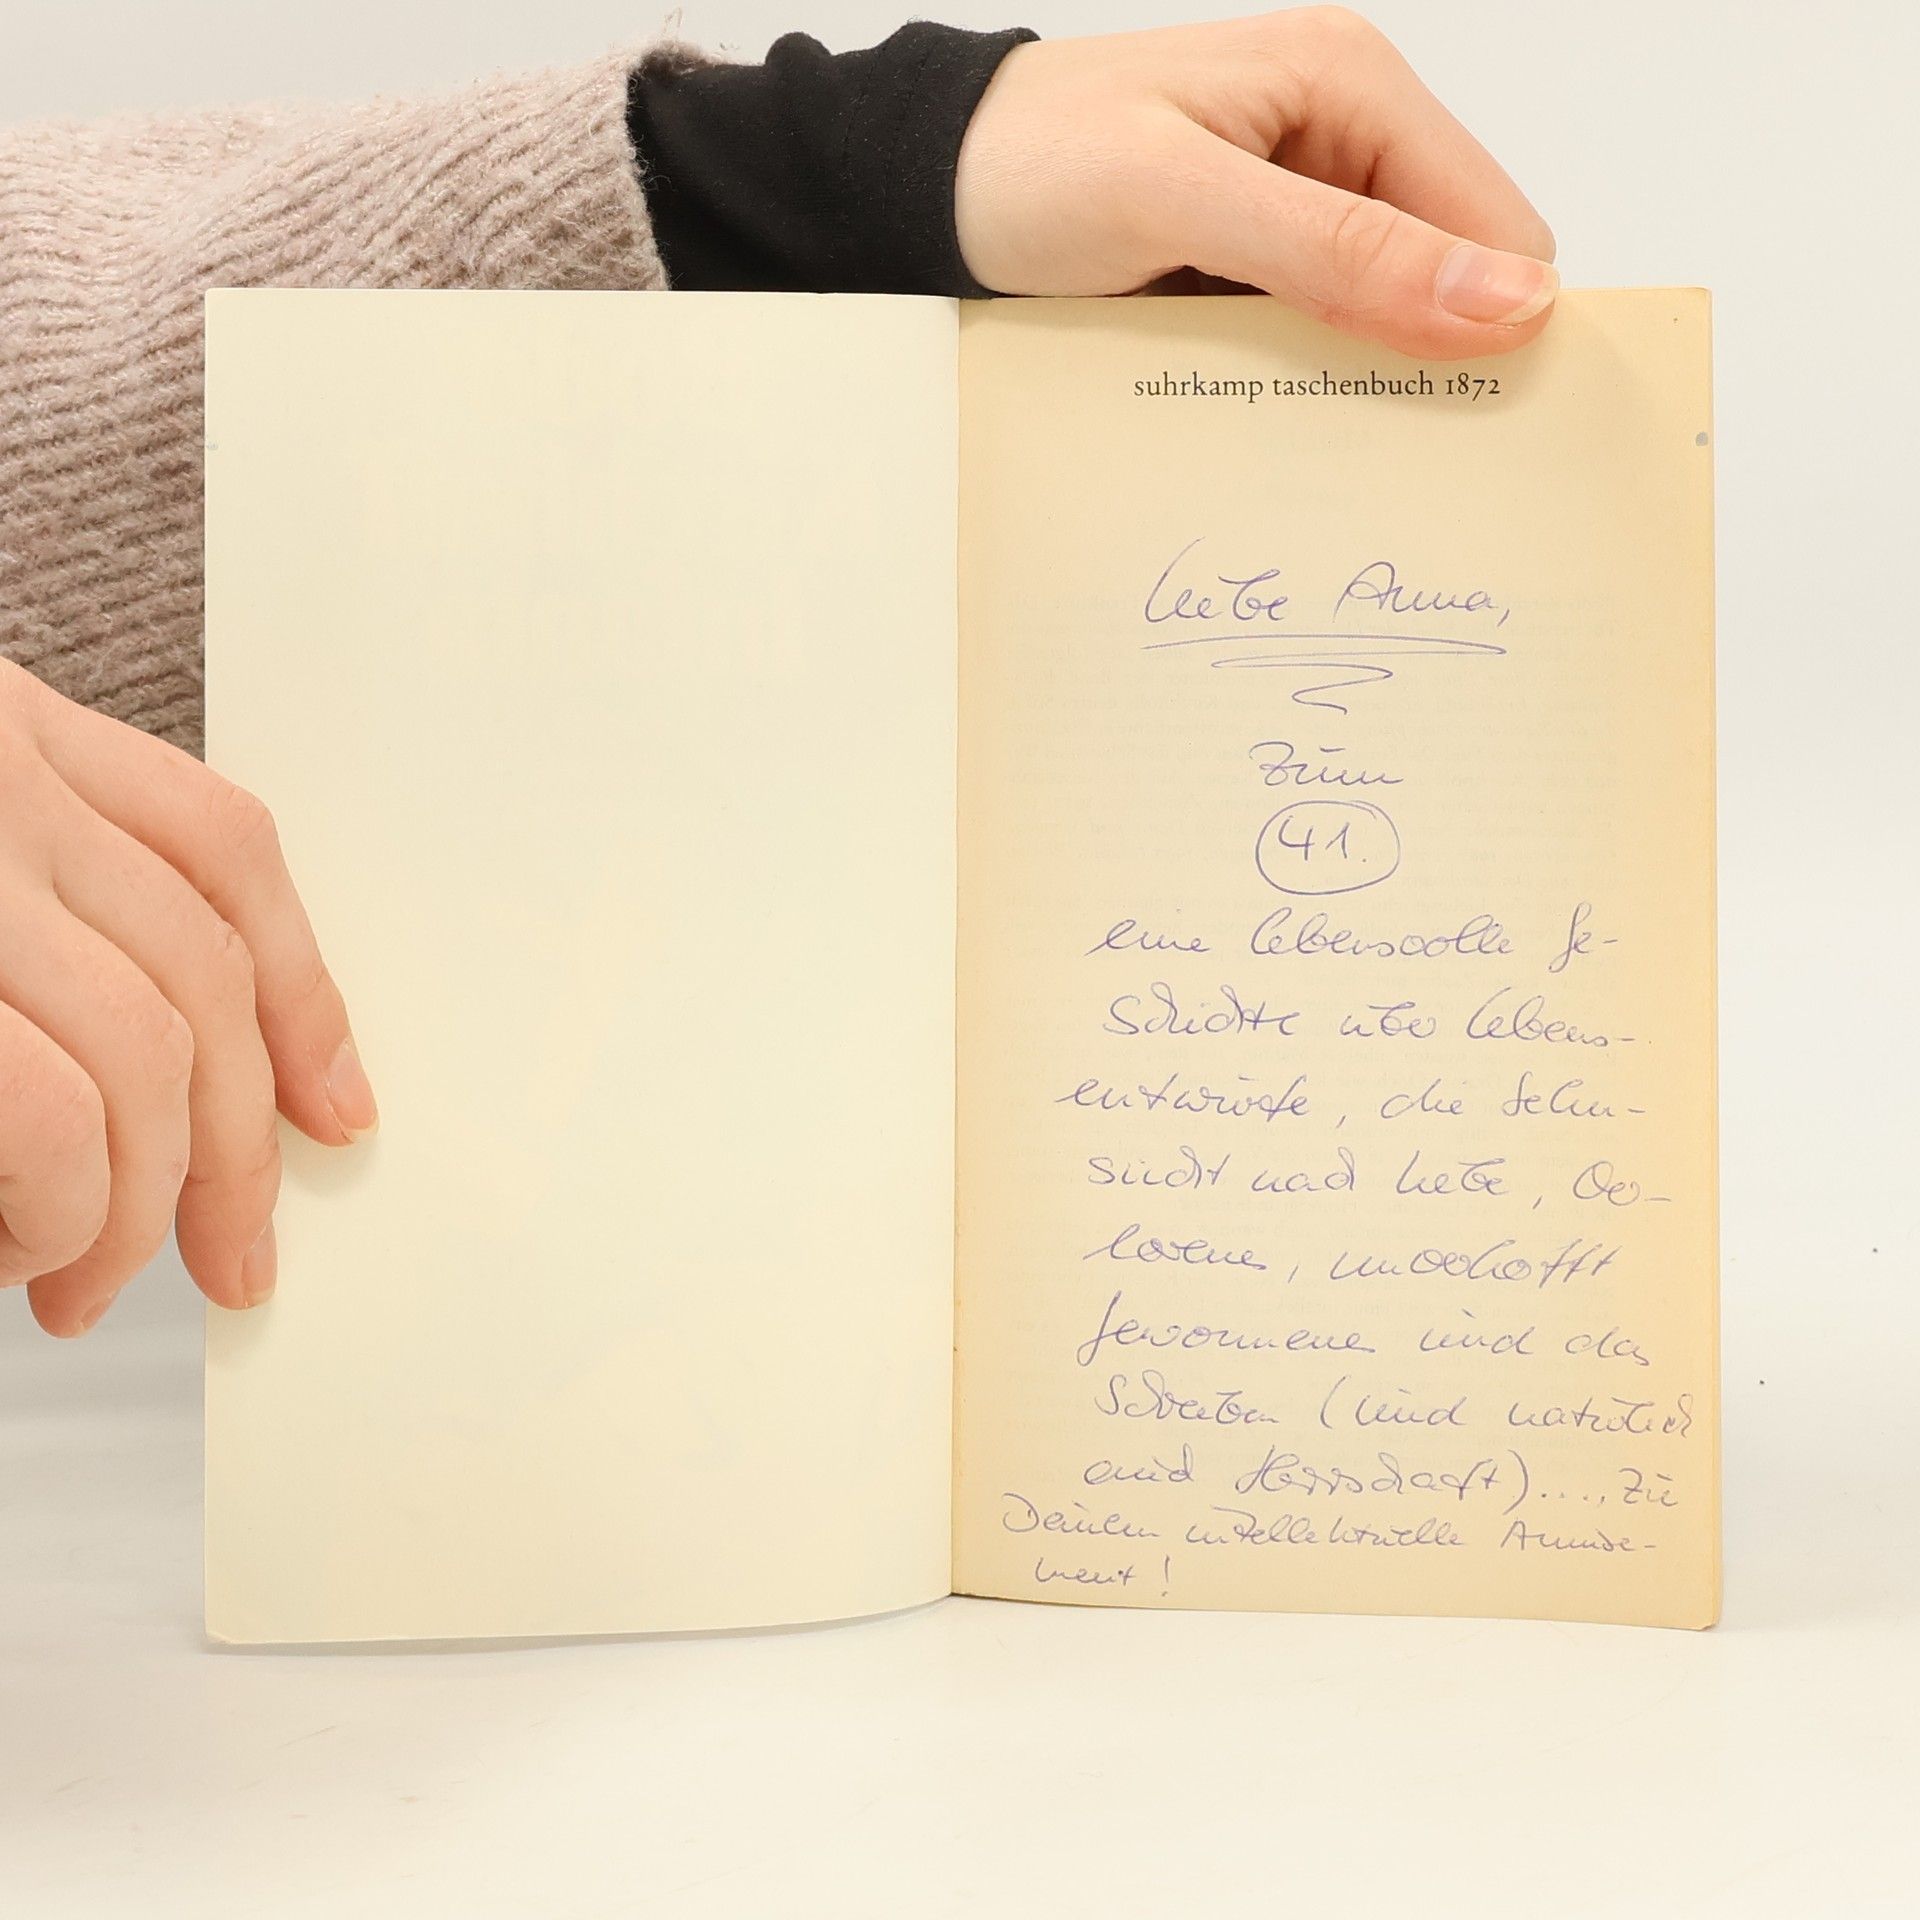 suhrkamp taschenbuch 1872
Liebe Anna,
zum
41.
eine lebensvolle Ge-
schichte über Lebens-
entwürfe, die Sehn-
sucht nach Liebe, Ver-
lorenes, unverhofft
Gewonnenes und das
Schreiben (und natürlich
auch Herrschaft)...., zu
Deinem intellektuelle Amüse-
ment!